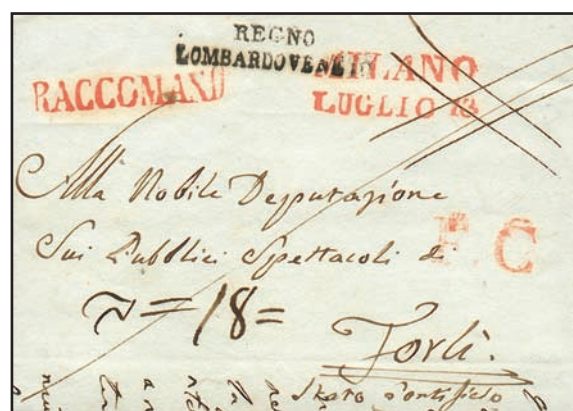 REGNO
LOMBARDOVENETO
MILANO
LUGLIO 13
RACCOMAND
Alla Nobile Deputazione
Sui Pubblici Spettacoli di
F.C
=18=
Forlì.
Stato Pontificio